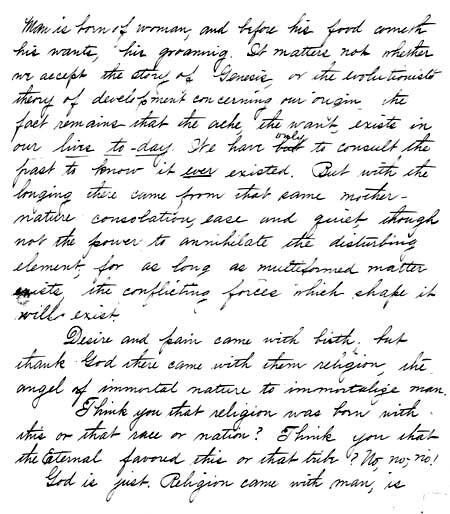 Man is born of woman, and before his food cometh
his wants, his groaning. It matters not whether
we accept the story of Genesis, or the evolutionists
theory of development concerning our origin, the
fact remains that the ache, the want, exists in
our lives to-day. We have only to consult the
past to know it ever existed. But with the
longing there came from that same mother-
nature consolation, ease and quiet, though
not the power to annihilate the disturbing
element, for as long as multiformed matter
exists, the conflicting forces which shape it
will exist.
Desire and pain came with birth; but
thank God there came with them religion, the
angel of immortal nature to immortalize man.
Think you that religion was born with
this or that race or nation? Think you that
the Eternal favored this or that tribe? No, no, no!
God is just. Religion came with man, is